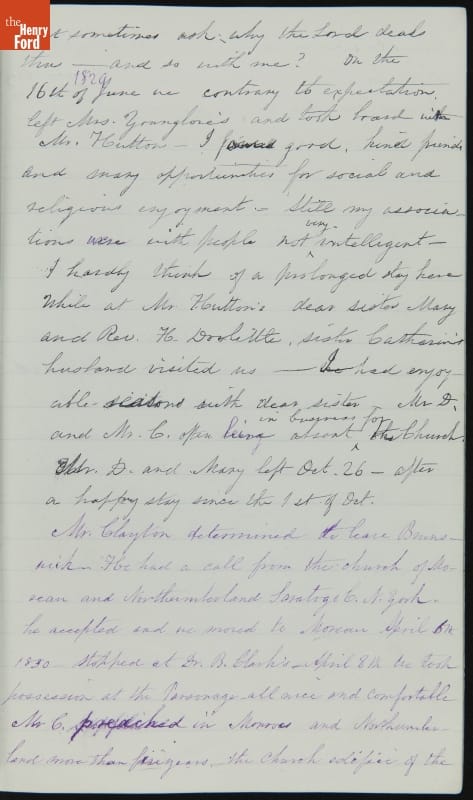 the
Henry
Ford
sometimes ask why the Lord deals
thus — and so with me? On the
1829
16th of June we contrary to expectation,
left Mrs. Younglove's and took board with
Mr. Hutton — I found good, kind friends
and many opportunities for social and
religious enjoyment — Still my associa-
tions were with people not very intelligent —
I hardly think of a prolonged stay here
While at Mr. Hutton's dear sister Mary
and Rev. H. Doolittle, sister Catharine's
husband visited us — had enjoy-
able seasons with dear sister — Mr D.
and Mr. C. often being absent in business for the Church.
Mr. D. and Mary left Oct. 26 — after
a happy stay since the 1st of Oct.
Mr. Clayton determined to leave Bruns-
wick — He had a call from the church of Mo-
reau and Northumberland Saratoga C. N. York.
he accepted and we moved to Moreau April 6th
1830 stopped at Dr. B. Clark's — April 8th we took
possession at the Parsonage all nice and comfortable
Mr C. preached in Moreau and Northumber-
land more than five years. the church edifice of the